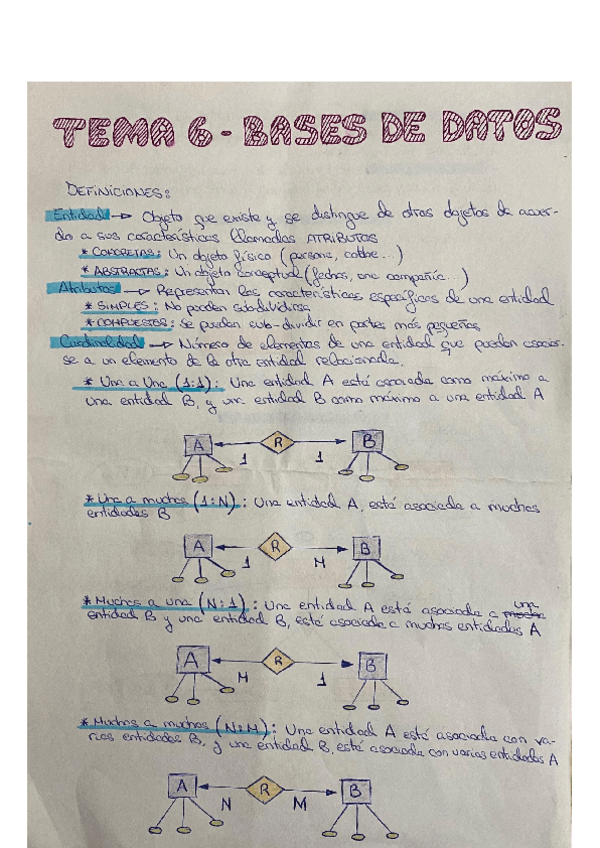 TEMA 6 - BASES DE DATOS
DEFINICIONES:
Entidad → Objeto que existe y se distingue de otros objetos de acuer-
do a sus características llamadas ATRIBUTOS
* CONCRETAS: Un objeto físico (persona, coche...)
* ABSTRACTAS: Un objeto conceptual (fechas, una compañía...)
Atributos → Representan las características específicas de una entidad
* SIMPLES: No pueden subdividirse
* COMPUESTOS: se pueden sub-dividir en partes más pequeñas
Cardinalidad → Número de elementos de una entidad que pueden asociar-
se a un elemento de la otra entidad relacionada.
* Una a Una (1:1): Una entidad A está asociada como máximo a
una entidad B, y una entidad B como máximo a una entidad A
A R B
1 1
* Una a muchas (1:N): Una entidad A, está asociada a muchas
entidades B
A R B
1 M
* Muchas a una (N:1): Una entidad A está asociada a una
entidad B y una entidad B, está asociada a muchas entidades A
A R B
M 1
* Muchas a muchas (N:M): Una entidad A está asociada con va-
rias entidades B, y una entidad B, está asociada con varias entidades A
A R B
N M